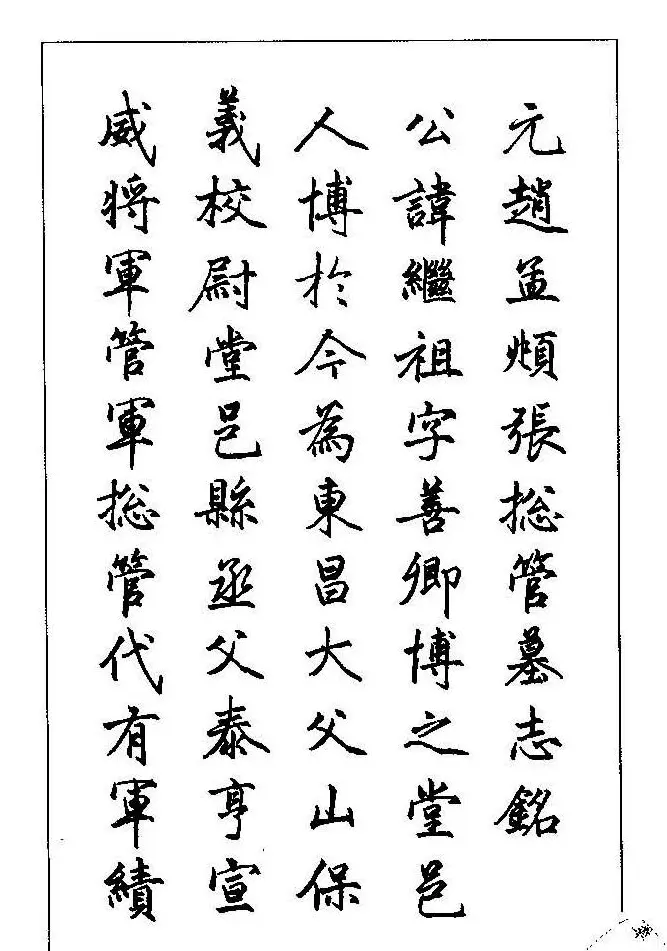 元趙孟頫張捴管墓志銘
公諱繼祖字善卿博之堂邑
人博於今為東昌大父山保
義校尉堂邑縣丞父泰亨宣
威將軍管軍捴管代有軍績